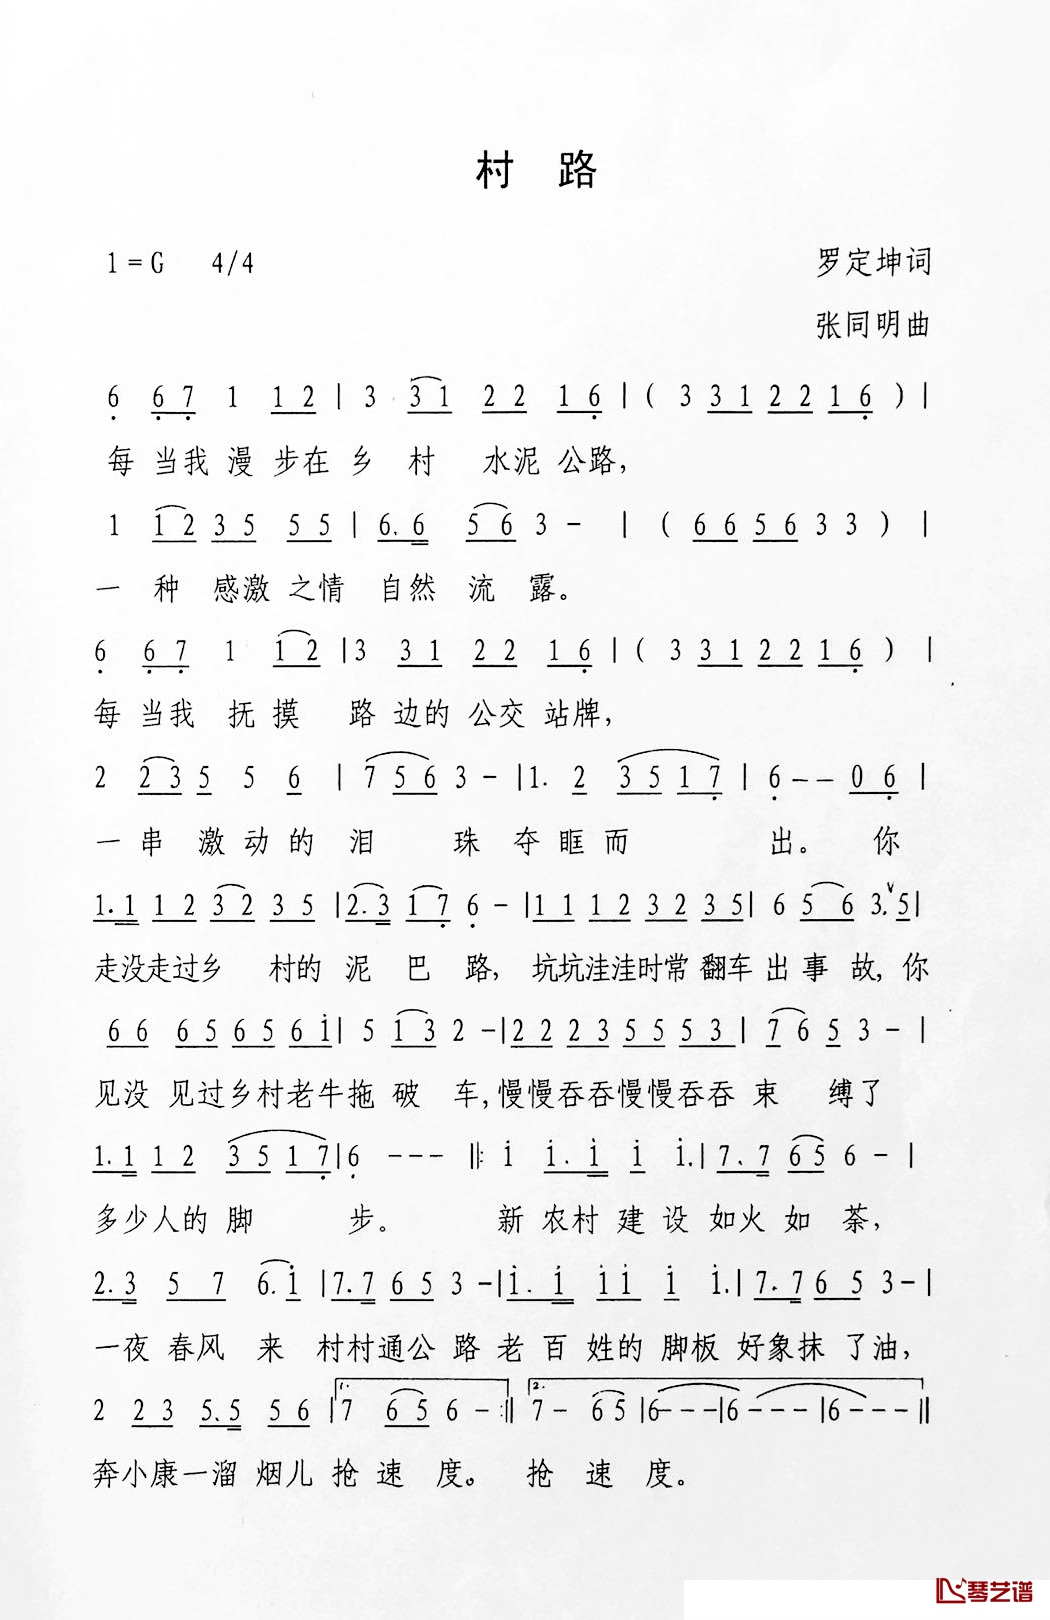 村 路
1=G 4/4 罗定坤词
张同明曲
6 6 7 1 1 2 | 3 3 1 2 2 1 6 | ( 3 3 1 2 2 1 6 ) |
每 当我 漫 步在 乡 村 水泥 公路，
1 1 2 3 5 5 5 | 6. 6 5 6 3 - | ( 6 6 5 6 3 3 ) |
一 种 感激 之情 自然 流 露。
6 6 7 1 1 2 | 3 3 1 2 2 1 6 | ( 3 3 1 2 2 1 6 ) |
每 当我 抚 摸 路 边的 公交 站牌，
2 2 3 5 5 6 | 7 5 6 3 - | 1. 2 3 5 1 7 | 6 - - 0 6 |
一 串 激 动 的 泪 珠 夺 眶 而 出。 你
1. 1 1 2 3 2 3 5 | 2. 3 1 7 6 - | 1 1 1 2 3 2 3 5 | 6 5 6 3. 5 |
走没走过乡 村的 泥 巴 路，坑坑洼洼时常 翻车 出 事 故，你
6 6 6 5 6 5 6 i | 5 1 3 2 - | 2 2 2 3 5 5 5 3 | 7 6 5 3 - |
见没 见过乡村老牛拖 破 车，慢慢吞吞慢慢吞吞 束 缚了
1. 1 1 2 3 5 1 7 | 6 - - - ‖: i i. i i i. | 7. 7 6 5 6 - |
多少人的 脚 步。 新 农村 建 设 如火 如 荼，
2. 3 5 7 6. i | 7. 7 6 5 3 - | i. i i i i i. | 7. 7 6 5 3 - |
一夜 春风 来 村村通公 路 老 百 姓的 脚板 好象抹 了油，
2 2 3 5. 5 5 6 | 1. 7 6 5 6 - :‖ 2. 7 - 6 5 | 6 - - - | 6 - - - | 6 - - - ‖
奔小康一溜 烟儿 抢 速 度。 抢 速 度。
琴艺谱